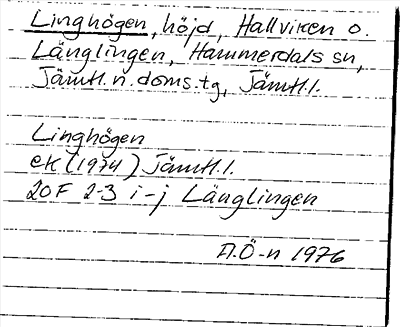 Linghögen, höjd, Hallviken o.
Länglingen, Hammerdals sn,
Jämtl.n.doms.tg, Jämtl.l.
Linghögen
ek (1974) Jämtl.l.
20F 2-3 i-j Länglingen
A.Ö-n 1976